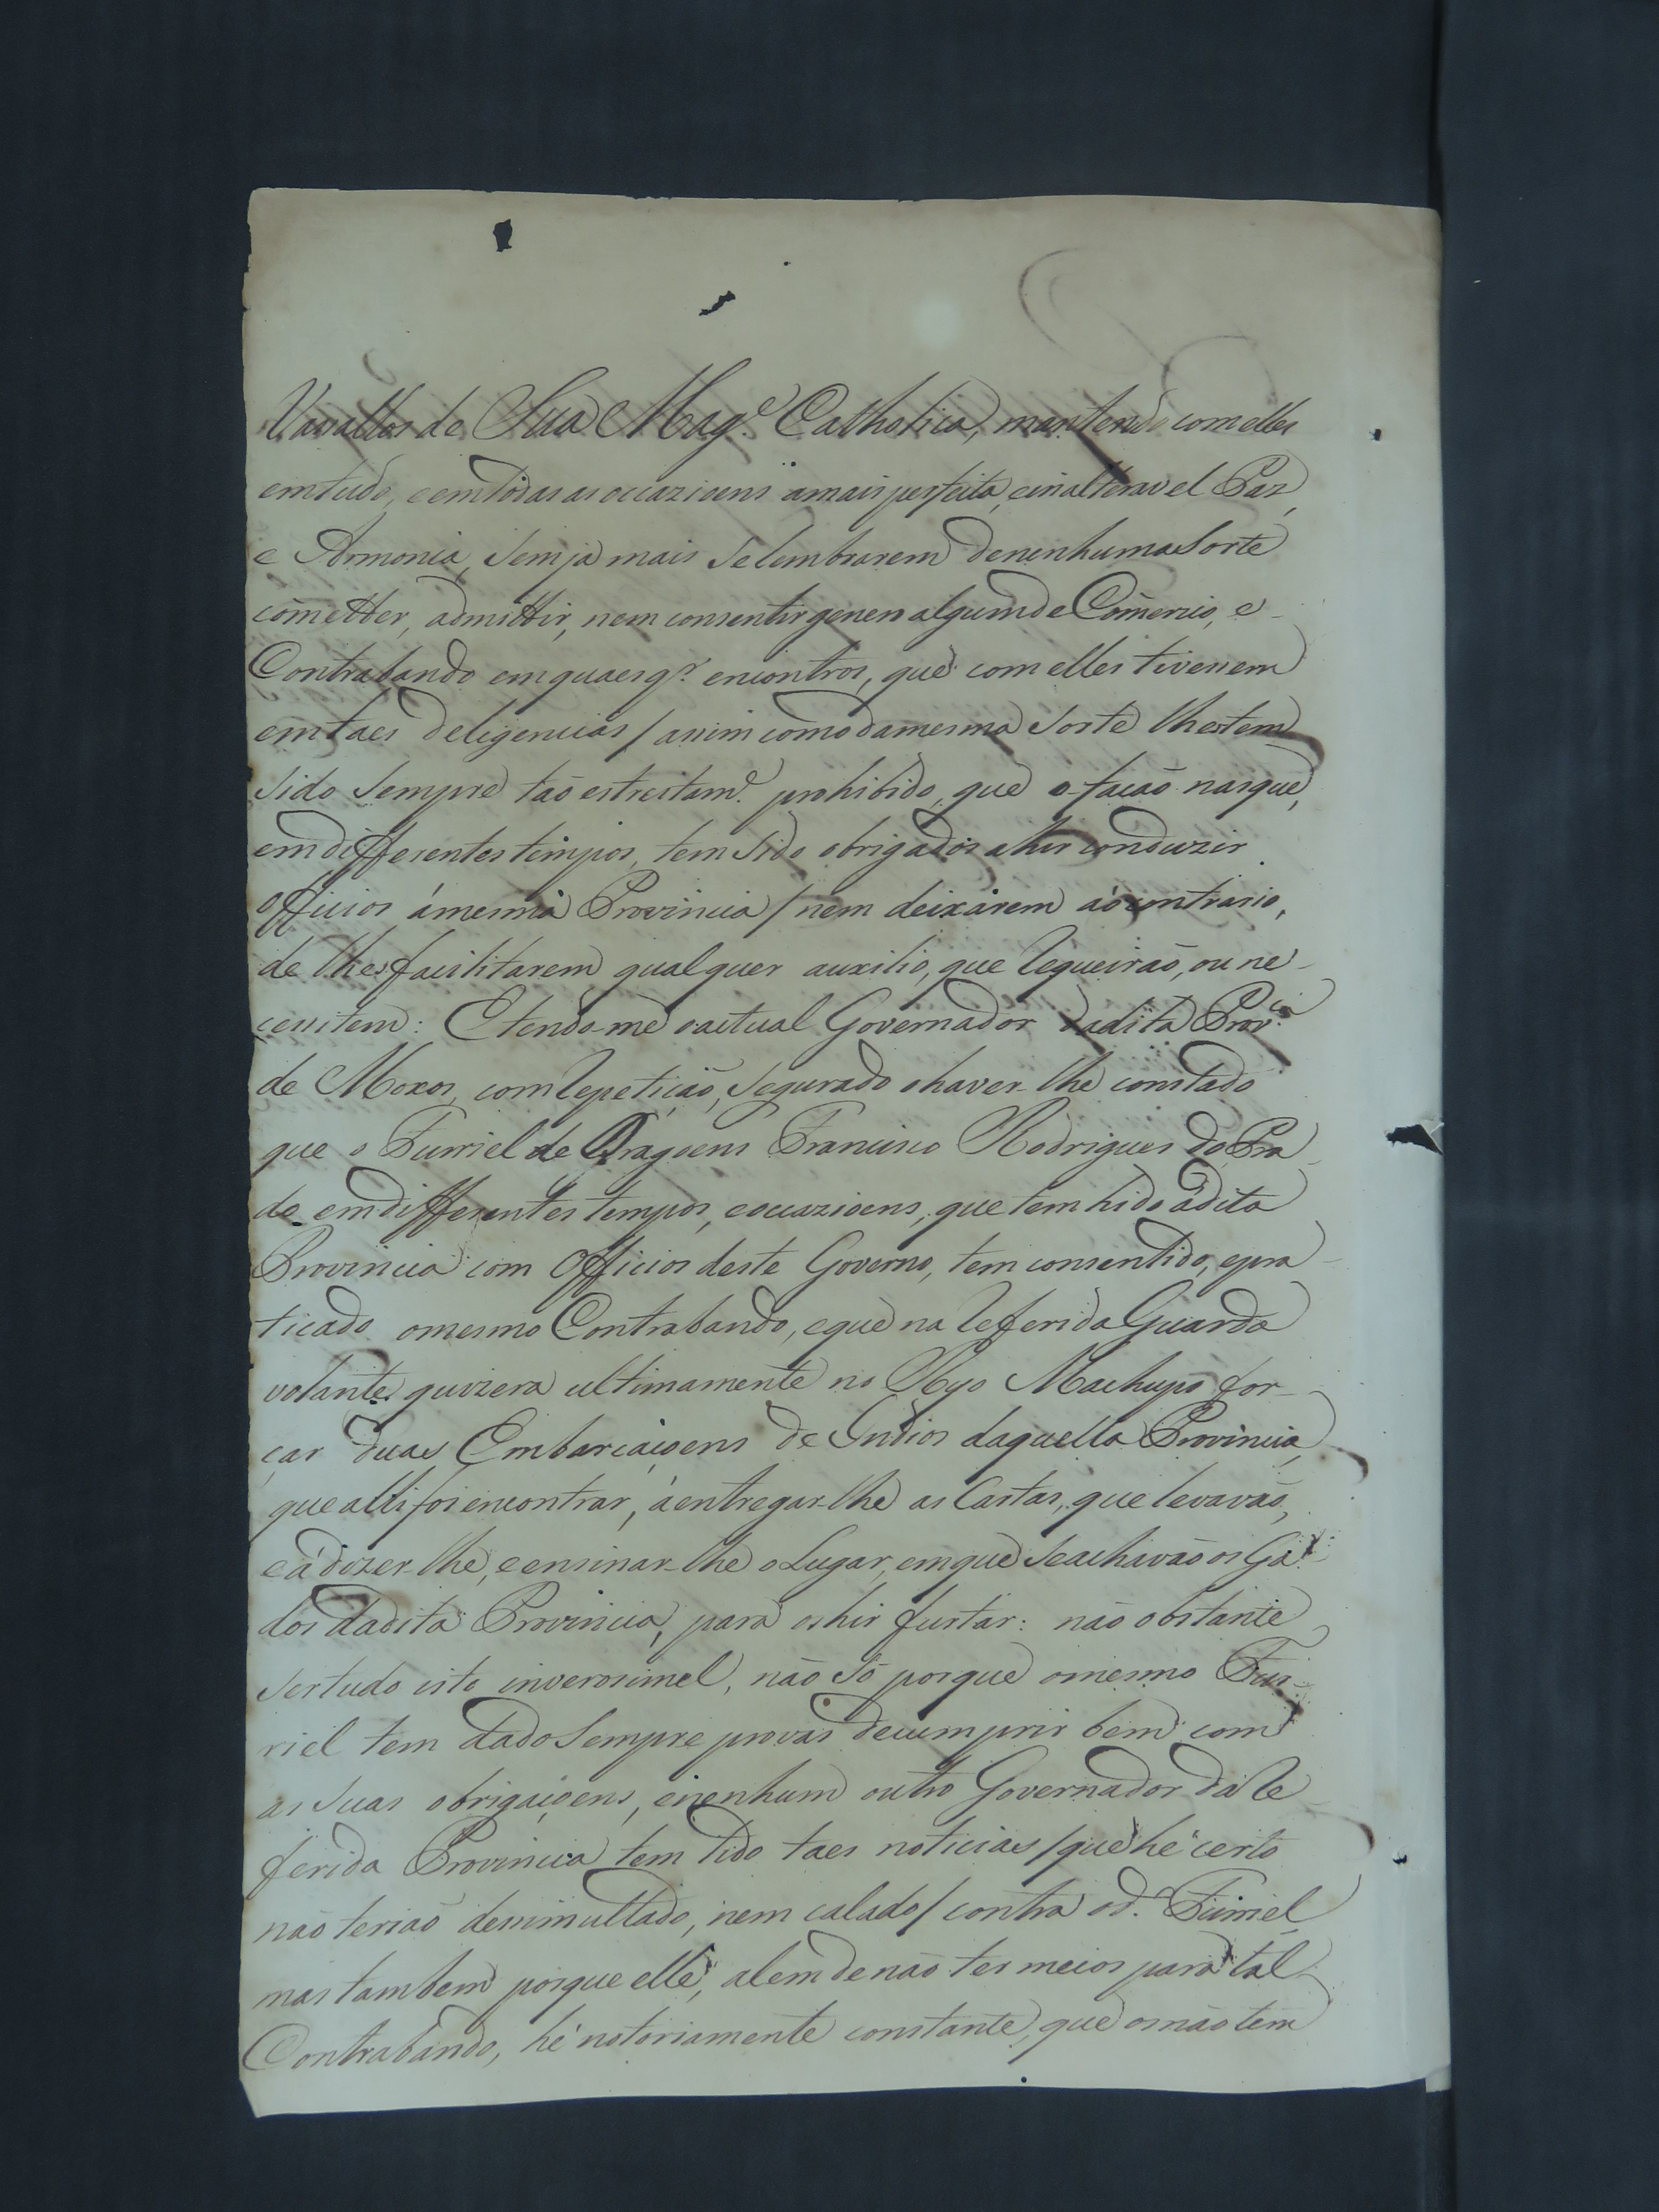 Vassallos de Sua Mag.e Catholica, mantendo com elles
em tudo, e em todas as occazioens a mais perfeita, e inalteravel Paz,
e Armonia, sem ja mais se lembrarem de nenhuma sorte
cõmetter, admittir, nem consentir genero algum de Cõmercio, e
Contrabando em quaesq.r encontros, que com elles tivessem
em taes deligencias / assim como da mesma sorte lhes tem
sido sempre taõ estreitam.e prohibido, que o façaõ nas que,
em differentes tempos, tem sido obrigados a hir conduzir
officios á mesma Provincia / nem deixarem áo contrario,
de lhes facilitarem qualquer auxilio, que requeiraõ, ou ne-
cessitem: E tendo-me o actual Governador da dita Prov.ca
de Moxos, com repetiçaõ, segurado o haver-lhe constado
que o Furriel de Dragoens Francisco Rodrigues do Pra-
do em differentes tempos, e occazioens, que tem hido á dita
Provincia com Officios deste Governo, tem consentido, e pra-
ticado o mesmo Contrabando, e que na referida Guarda
volante quizera ultimamente no Ryo Machupo for-
çar duas Embarcaçoens de Indios daquella Provincia,
que alli foi encontrar, á entregar-lhe as Cartas, que levavaõ,
e á dizer-lhe, e ensinar-lhe o Lugar, em que se achavaõ os Ga-
dos da dita Provincia, para os hir furtar: naõ obstante
ser tudo isto inverosimel, naõ só porque o mesmo Fur-
riel tem dado sempre provas de cumprir bem com
as suas obrigaçoens, e nenhum outro Governador da re-
ferida Provincia tem tido taes noticias / que hé certo
naõ teriaõ dessimultado, nem calado / contra o d.o Furriel,
mas tambem porque elle, alem de naõ ter meios para tal
Contrabando, hé notoriamente constante, que o naõ tem